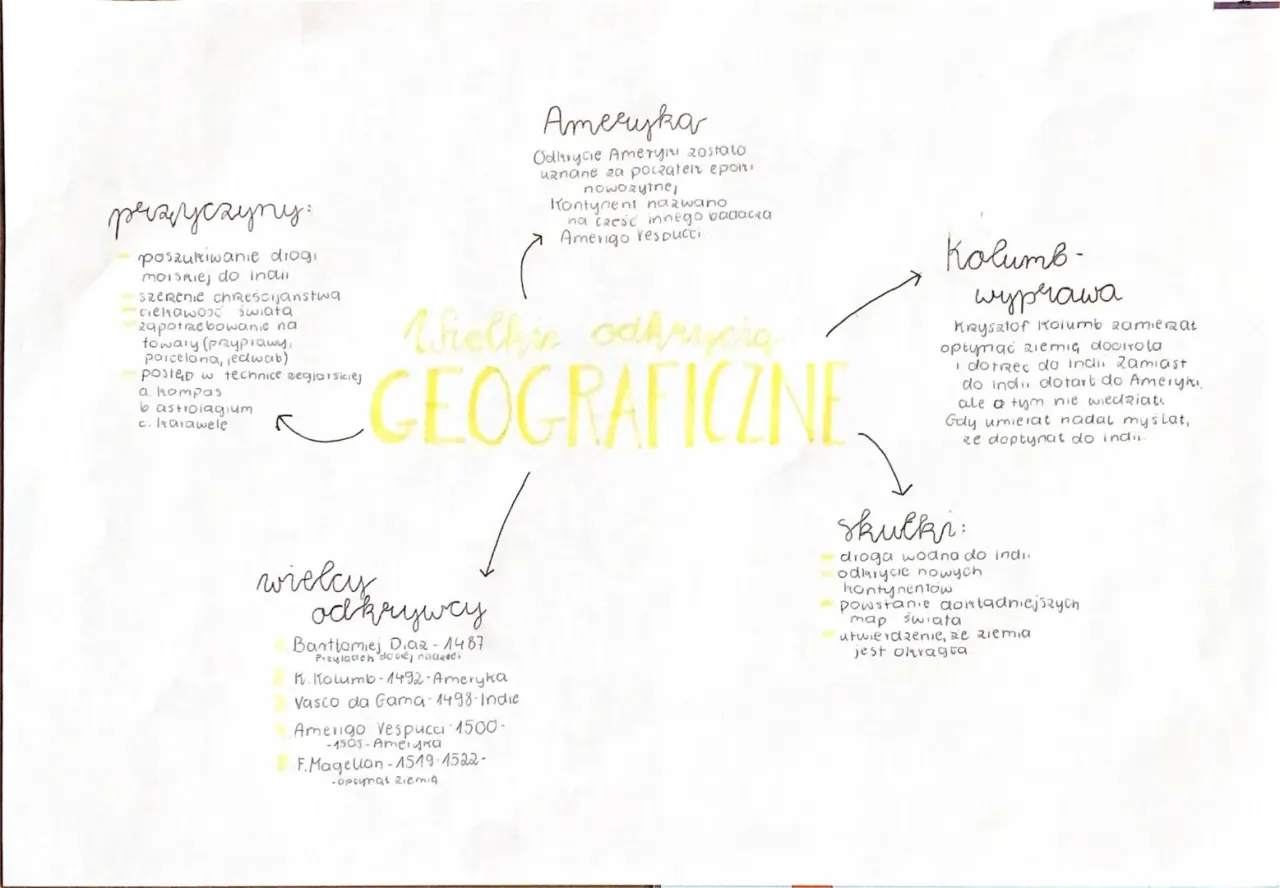 Ameryka
Odkrycie Ameryki zostało
uznane za początek epoki
nowożytnej
Kontynent nazwano
na cześć innego badacza
Amerigo Vespucci
przyczyny:
poszukiwanie drogi
morskiej do Indii
szerzenie chrześcijaństwa
ciekawość świata
zapotrzebowanie na
towary (przyprawy,
porcelana, jedwab)
postęp w technice żeglarskiej
a. kompas
b astrolagium
c. karawele
Wielkie odkrycia
GEOGRAFICZNE
Kolumb-
wyprawa
Krzysztof Kolumb zamierzał
opłynąć ziemię dookoła
i dotrzeć do Indii Zamiast
do indii dotarł do Ameryki,
ale o tym nie wiedział.
Gdy umierał nadal myślał,
że dopłynął do indii.
skutki:
droga wodna do indii
odkrycie nowych
kontynentów
powstanie dokładniejszych
map świata
utwierdzenie, że ziemia
jest okrągła
wielcy
odkrywcy
1. Bartłomiej Diaz - 1487
Przylądek dobrej nadziei
2 K. Kolumb - 1492 - Ameryka
3 Vasco da Gama - 1498 - Indie
4. Amerigo Vespucci - 1500-
-1505 - Ameryka
5 F. Magellan - 1519 - 1522 -
- opłynął ziemię